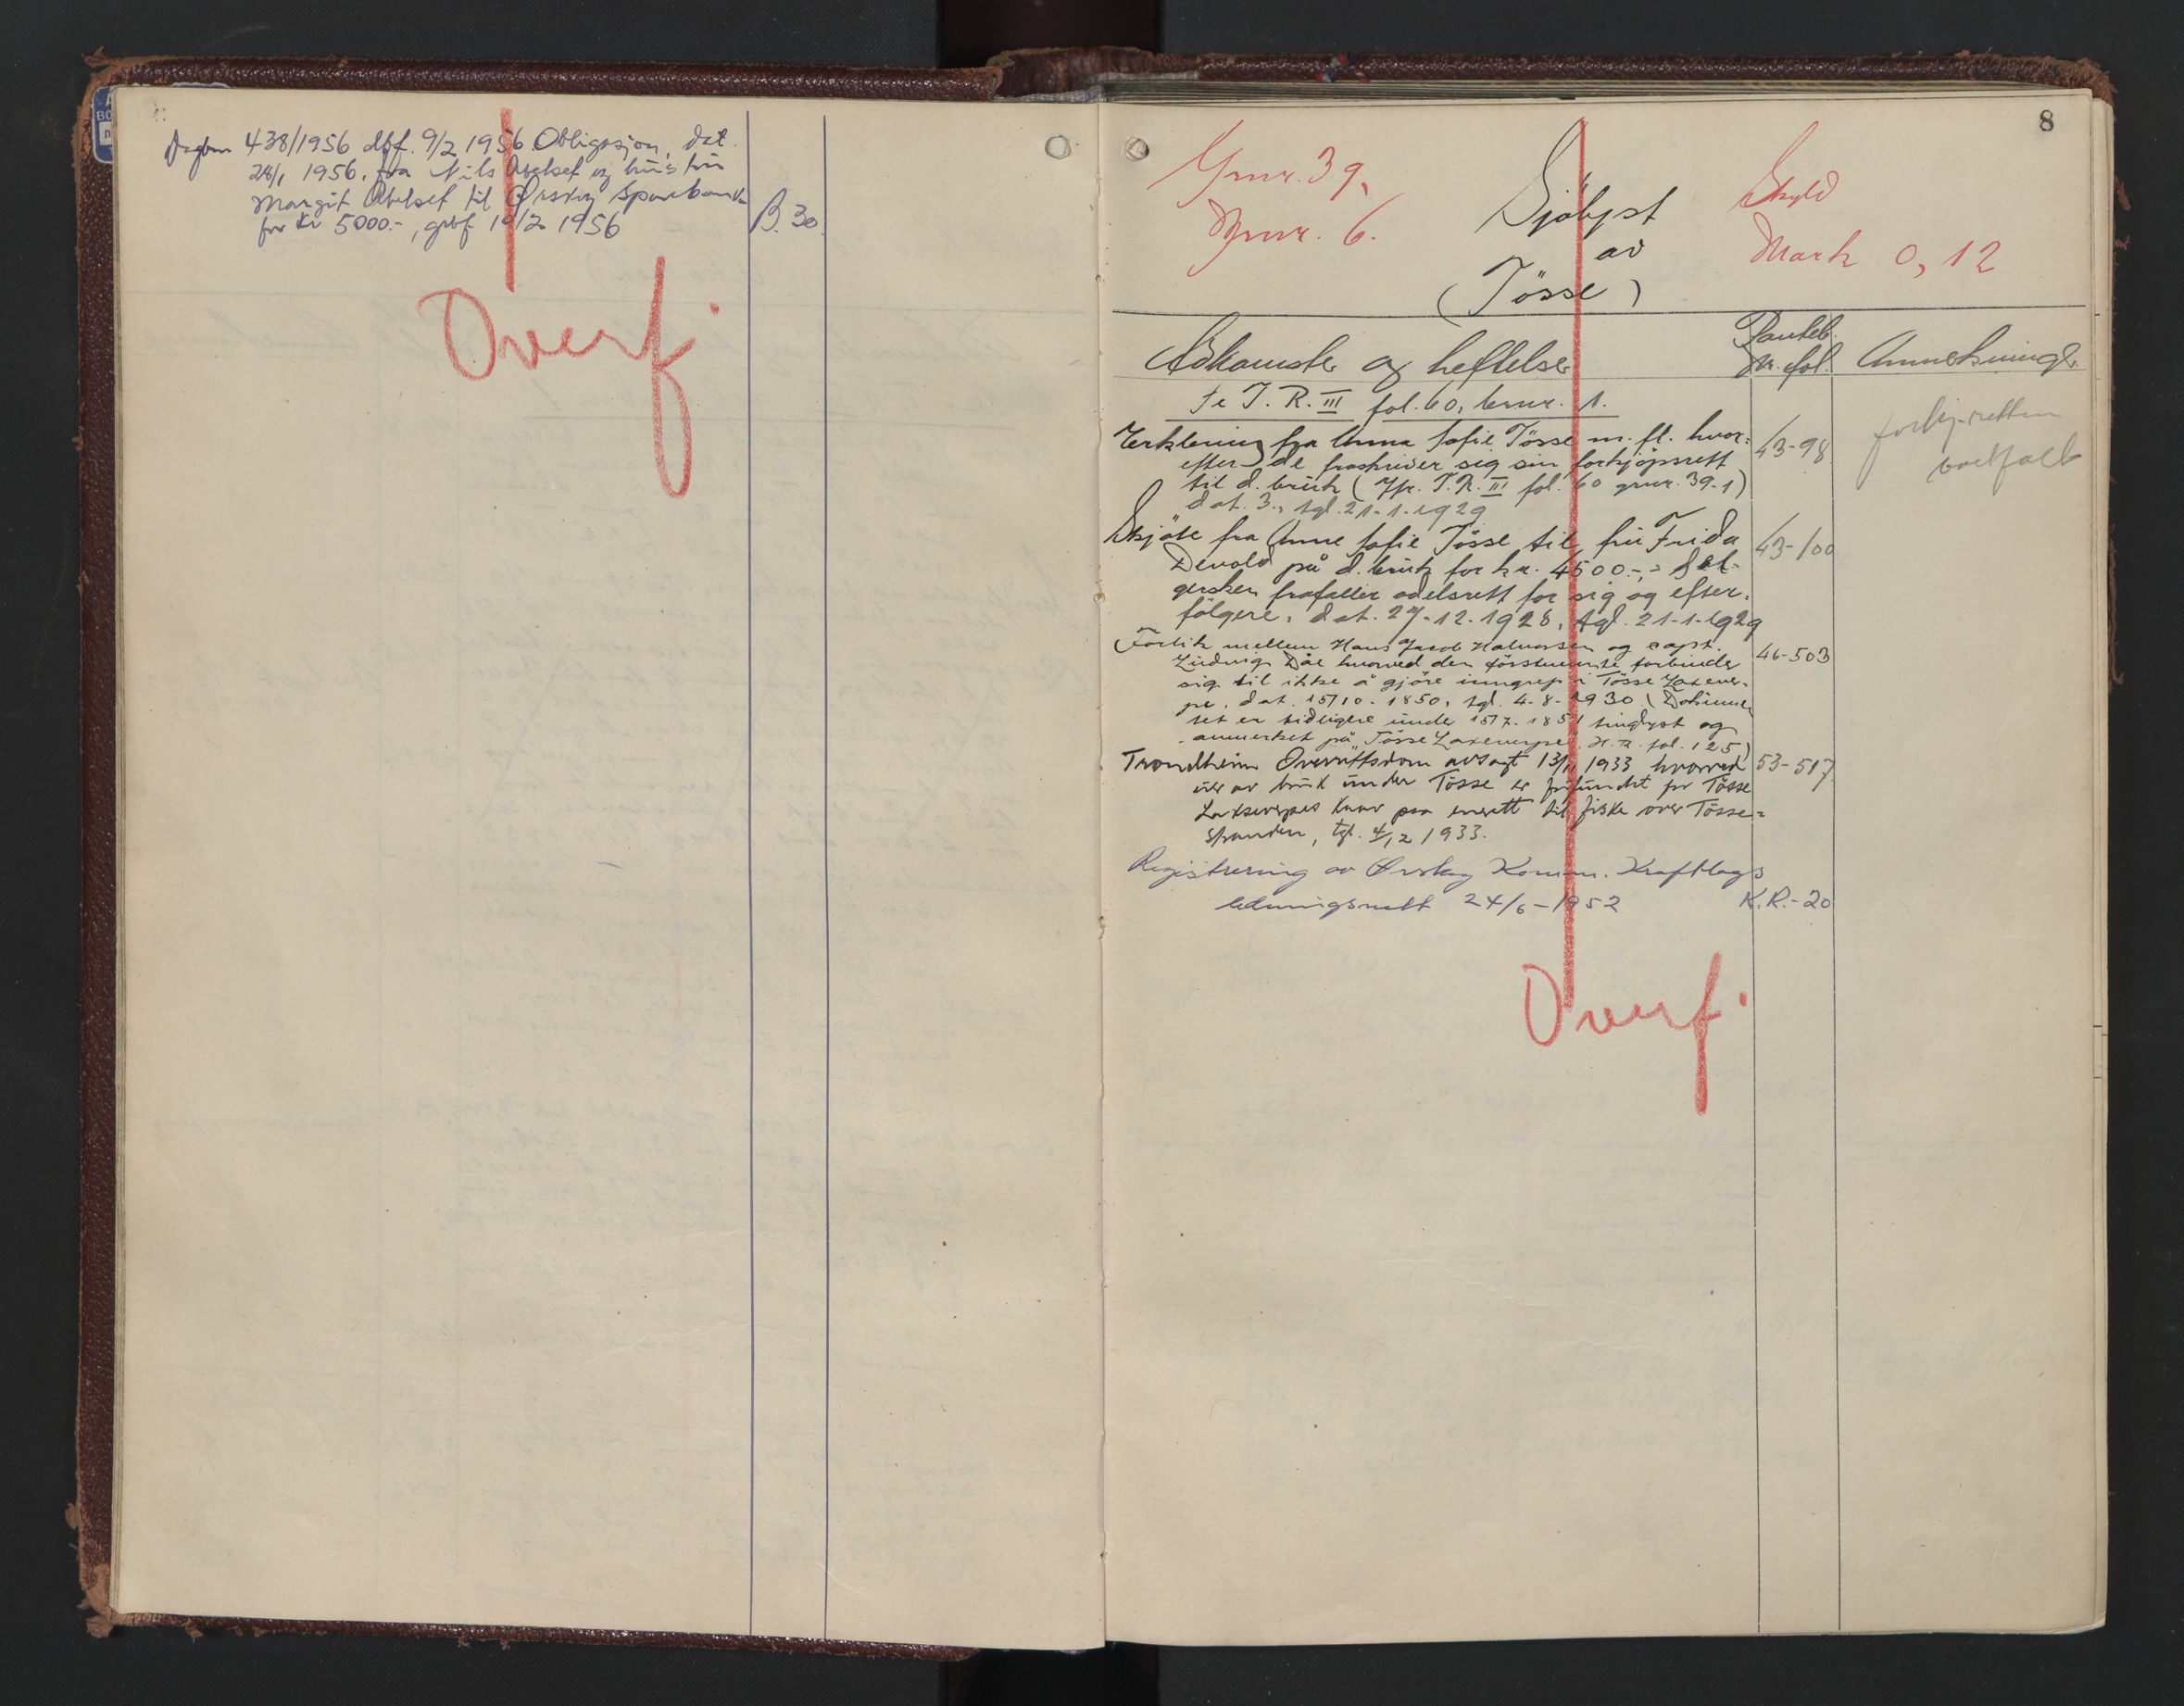 Dagbnr 438/1956 dbf. 9/2 1956 Obligasjon, dat.
28/1 1956, fra Nils Abelset og hustru
Margit Abelset til Ørskog Sparebank
for kr 5000.-, grbf. 10/2 1956
B.30.
Overf.
8
Gnr. 39,
Bnr. 6.
Sjöbyst
av
(Tösse)
Skyld
Mark 0,12
Adkomster og heftelser
Panteb.
Nr. fol.
Anmerkninger
Se T. R. III fol. 60, brnr. 1.
Erklæring fra Anna Sofie Tösse m. fl. hvor-
efter de fraskriver sig sin forkjöpsrett
til d. bruk (Jfr. T.R. III fol. 60 gnr. 39-1)
dat. 3., tgl. 21-1-1929
43-98
forkj.retten
bortfalt
Skjöte fra Anne Sofie Tösse til fru Frida
Devold på d. bruk for kr. 4500.-, - Sel-
gersken frafaller odelsrett for sig og efter-
fölgere, dat. 27-12-1928, tgl. 21-1-1929
43-100
Forlik mellem Hans Jacob Halvorsen og capt.
Ludvig Dåe hvorved den förstnevnte forbinder
sig til ikke å gjöre inngrep i Tösse Laxever-
pe, dat. 15/10-1850, tgl. 4-8-1930 (Dokumen-
tet er tidligere under 15/7-1851 tinglyst og
anmerket på "Tösse Laxeverpe", fol. 125)
46-503
Trondheim Overrettsdom avsagt 13/11 1933 hvorved
eier av bruk under Tösse er frifundet for Tösse
Lakseverpes krav paa enerett til fiske over Tösse-
stranden, tgl. 4/12 1933.
53-517
Registrering av Ørskog Komm. Kraftlags
ledningsnett 24/6-1952
K.R.-20
Overf.